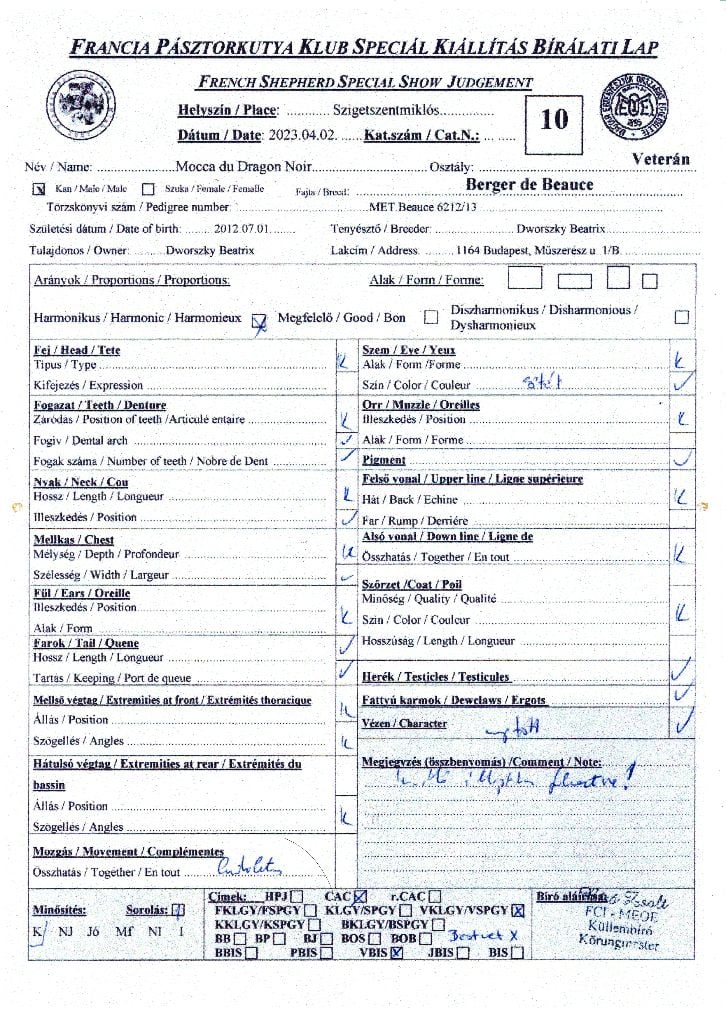 FRANCIA PÁSZTORKUTYA KLUB SPECIÁL KIÁLLÍTÁS BÍRÁLATI LAP
FRENCH SHEPHERD SPECIAL SHOW JUDGEMENT
Helyszín / Place: ............ Szigetszentmiklós...............
10
Dátum / Date: 2023.04.02. ...... Kat.szám / Cat.N.: ... ......
Név / Name: ......................Mocca du Dragon Noir.............................Osztály: ......................... Veterán
Kan / Male / Male Szuka / Female / Femalle Fajta / Breed: Berger de Beauce
Törzskönyvi szám / Pedigree number: ..........................MET.Beauce 6212/13
Születési dátum / Date of birth: ........ 2012.07.01........ Tenyésztő / Breeder: ..........Dworszky Beatrix
Tulajdonos / Owner: ..........Dworszky Beatrix Lakcím / Address: ............1164 Budapest, Műszerész u. 1/B.
Arányok / Proportions / Proportions: Alak / Form / Forme:
Harmonikus / Harmonic / Harmonieux Megfelelő / Good / Bon Diszharmonikus / Disharmonious / Dysharmonieux
Fej / Head / Tete
Típus / Type K
Kifejezés / Expression
Fogazat / Teeth / Denture
Záródás / Position of teeth /Articulé entaire K
Fogív / Dental arch
Fogak száma / Number of teeth / Nobre de Dent
Nyak / Neck / Cou
Hossz / Length / Longueur K
Illeszkedés / Position
Mellkas / Chest
Mélység / Depth / Profondeur K
Szélesség / Width / Largeur
Fül / Ears / Oreille
Illeszkedés / Position K
Alak / Form
Farok / Tail / Quene
Hossz / Length / Longueur
Tartás / Keeping / Port de queue
Mellső végtag / Extremities at front / Extrémités thoracique
Állás / Position K
Szögellés / Angles K
Hátulsó végtag / Extremities at rear / Extrémités du
bassin
Állás / Position K
Szögellés / Angles
Mozgás / Movement / Complémentes
Összhatás / Together / En tout
Szem / Eye / Yeux
Alak / Form /Forme K
Szín / Color / Couleur sötét
Orr / Muzzle / Oreilles
Illeszkedés / Position K
Alak / Form / Forme
Pigment
Felső vonal / Upper line / Ligne supérieure
Hát / Back / Echine K
Far / Rump / Derriére
Alsó vonal / Down line / Ligne de
Összhatás / Together / En tout K
Szőrzet /Coat / Poil
Minőség / Quality / Qualité
Szín / Color / Couleur K
Hosszúság / Length / Longueur
Herék / Testicles / Testicules
Fattyú karmok / Dewclaws / Ergots
Vézen / Character nyitott
Megjegyzés (összbenyomás) /Comment / Note:
Minősítés: Sorolás: 1
K NJ Jó Mf NI I
Címek: HPJ CAC r.CAC
FKLGY/FSPGY KLGY/SPGY VKLGY/VSPGY
KKLGY/KSPGY BKLGY/BSPGY
BB BP BJ BOS BOB Best vet X
BBIS PBIS VBIS JBIS BIS
Bíró aláírása:
FCI - MEOE
Küllembíró
Körungmester